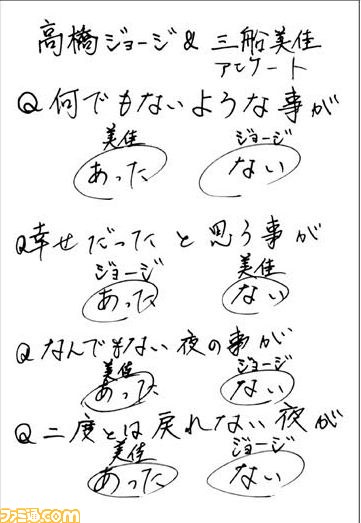 高橋ジョージ & 三船美佳
アンケート
Q 何でもないような事が
美佳 ジョージ
あった ない
Q 幸せだったと思う事が
ジョージ 美佳
あった ない
Q なんでもない夜の事が
美佳 ジョージ
あった ない
Q 二度とは戻れない夜が
美佳 ジョージ
あった ない
ファミ通.com